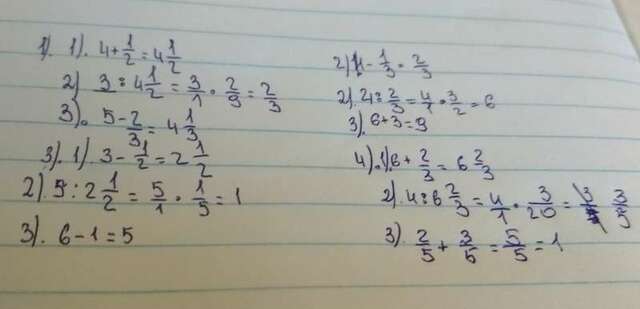 1). 1). 4+1/2=4 1/2
2) 3:4 1/2=3/1·2/9=2/3
3). 5-2/3=4 1/3
3). 1). 3-1/2=2 1/2
2). 5:2 1/2=5/1·1/5=1
3). 6-1=5
2) 1-1/3=2/3
2). 4:2/3=4/1·3/2=6
3). 6+3=9
4). 1). 6+2/3=6 2/3
2). 4:6 2/3=4/1·3/20= 3/5
3). 2/5+3/5=5/5=1